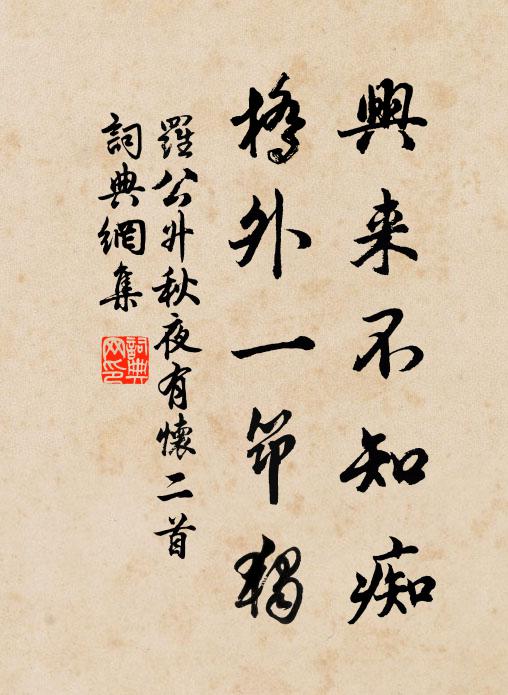 興来不知痴
橋外一笻獨
羅公升秋夜有懷二首
詞典網集
詞典
网印